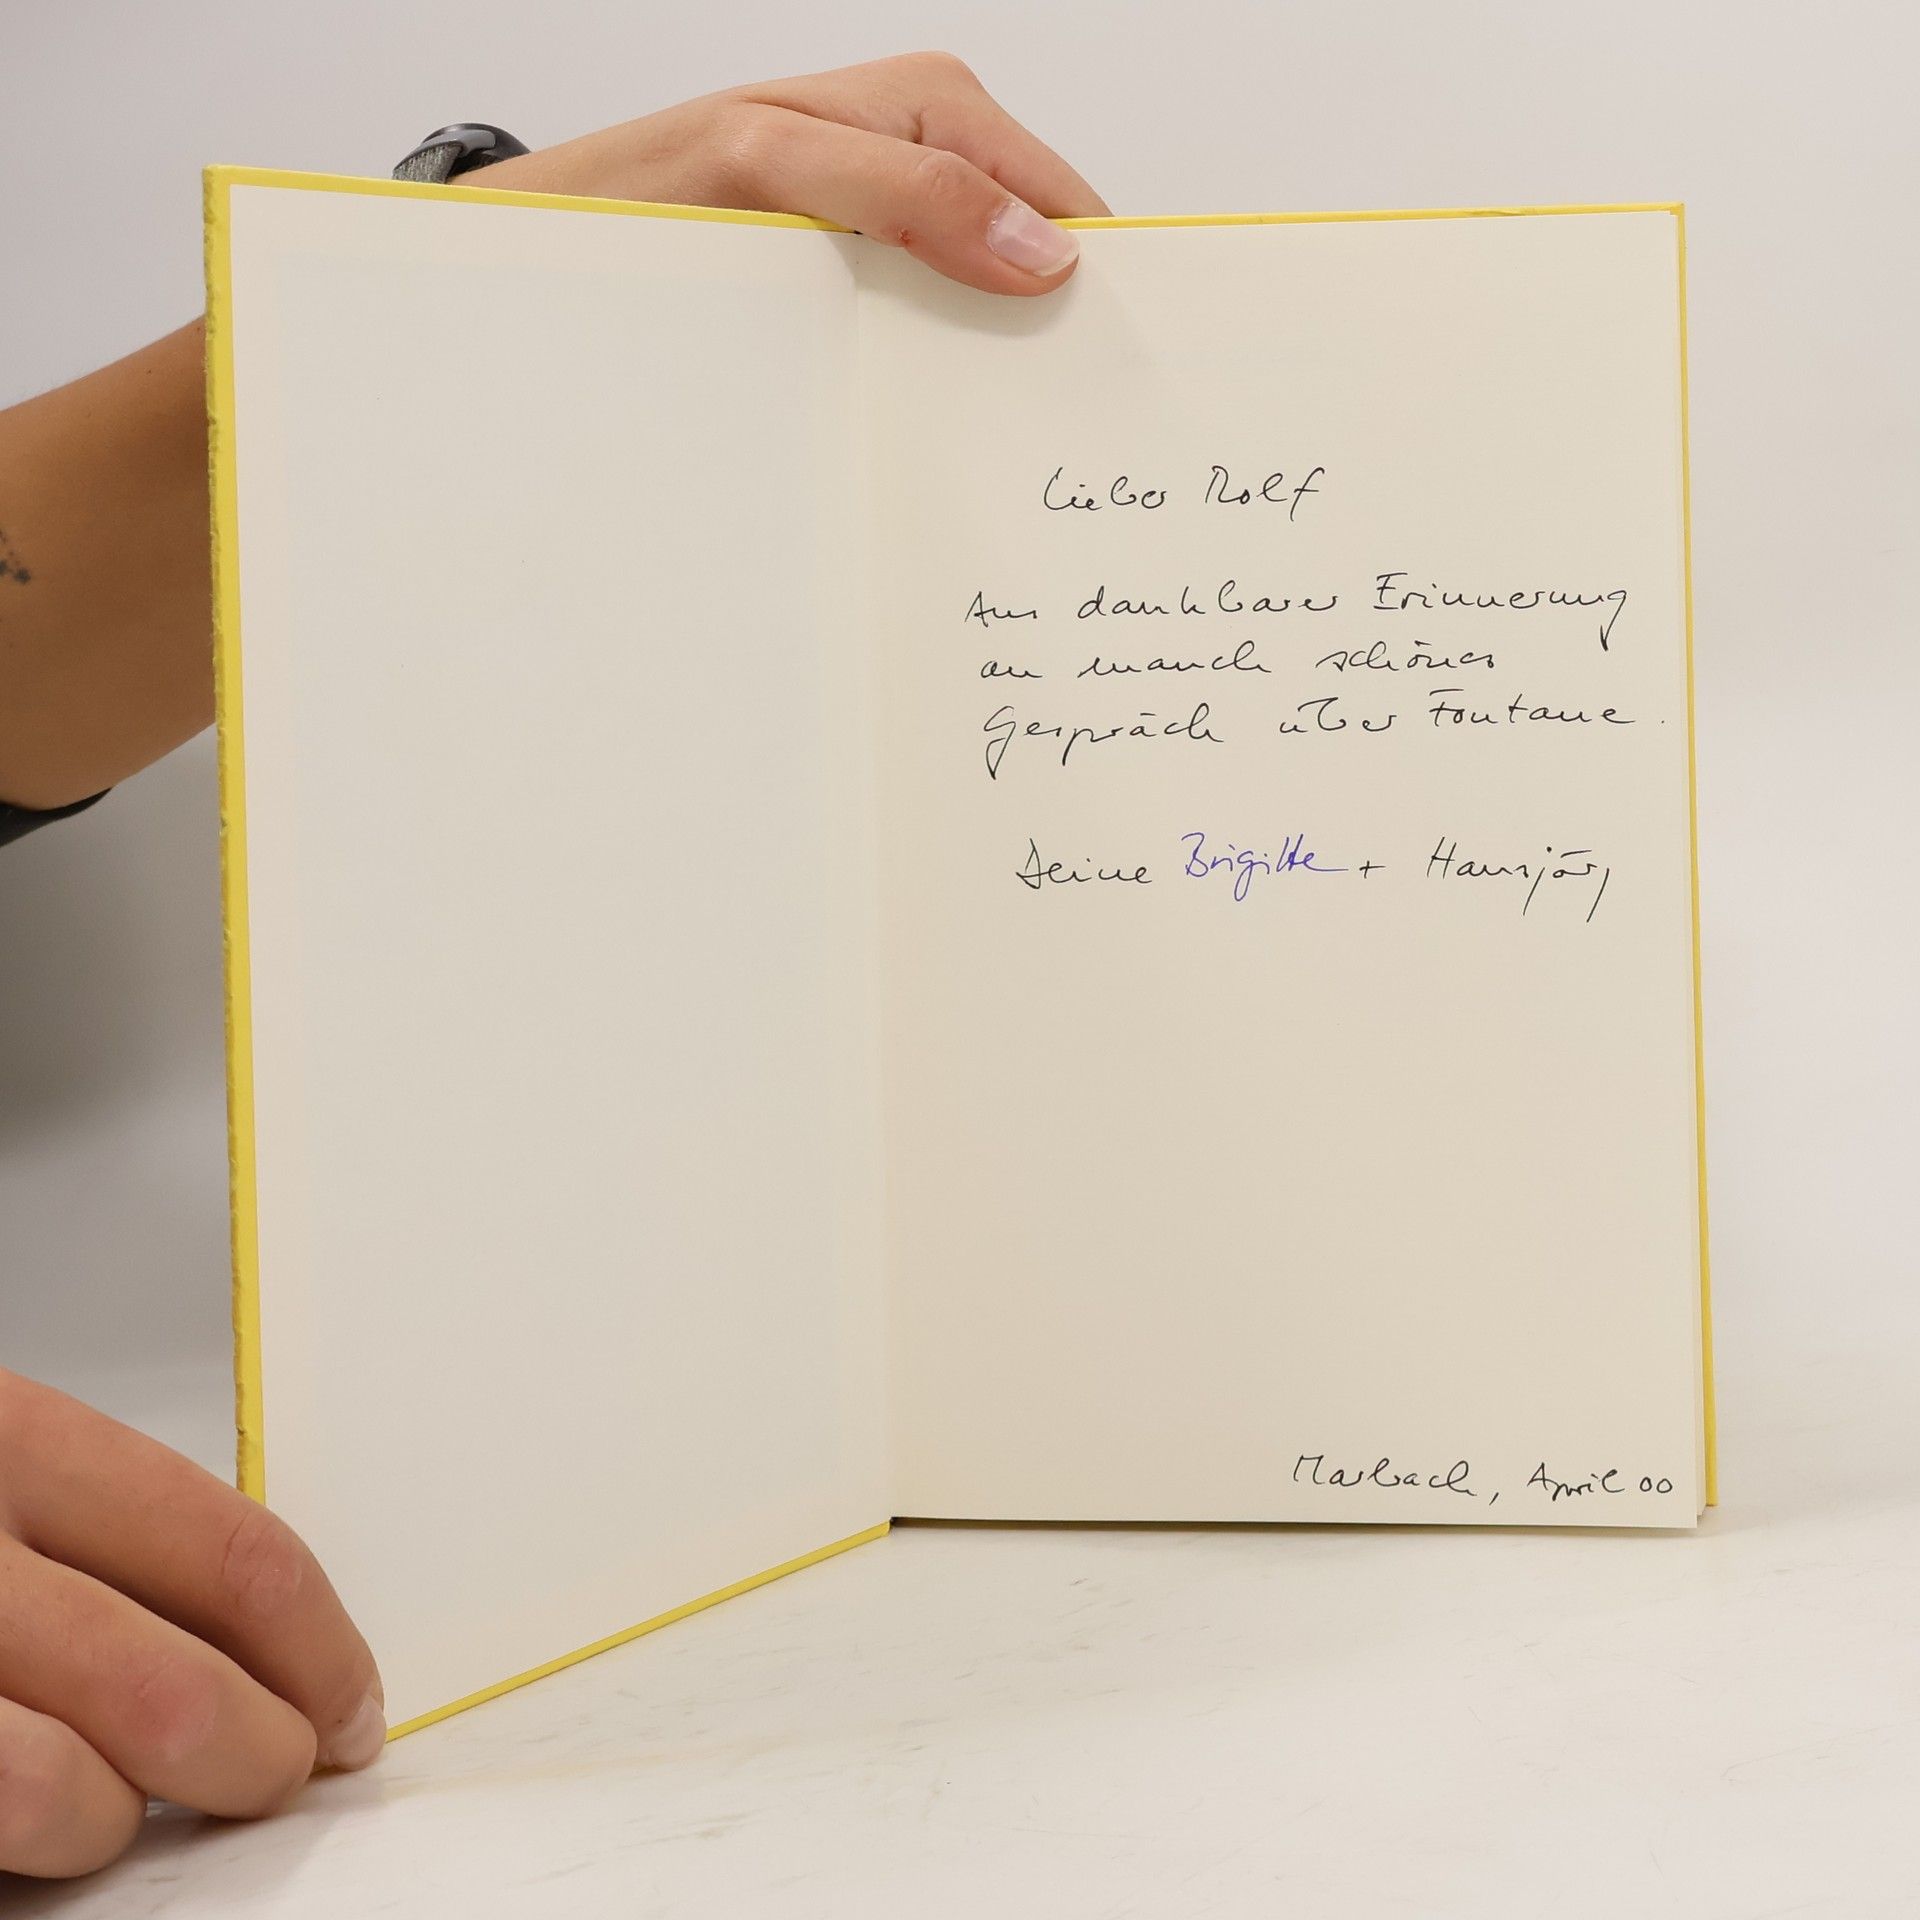 Lieber Rolf
Aus dankbarer Erinnerung
an manch schönes
Gespräch über Fontane.
Deine Brigitte + Hansjörg
Marbach, April 00